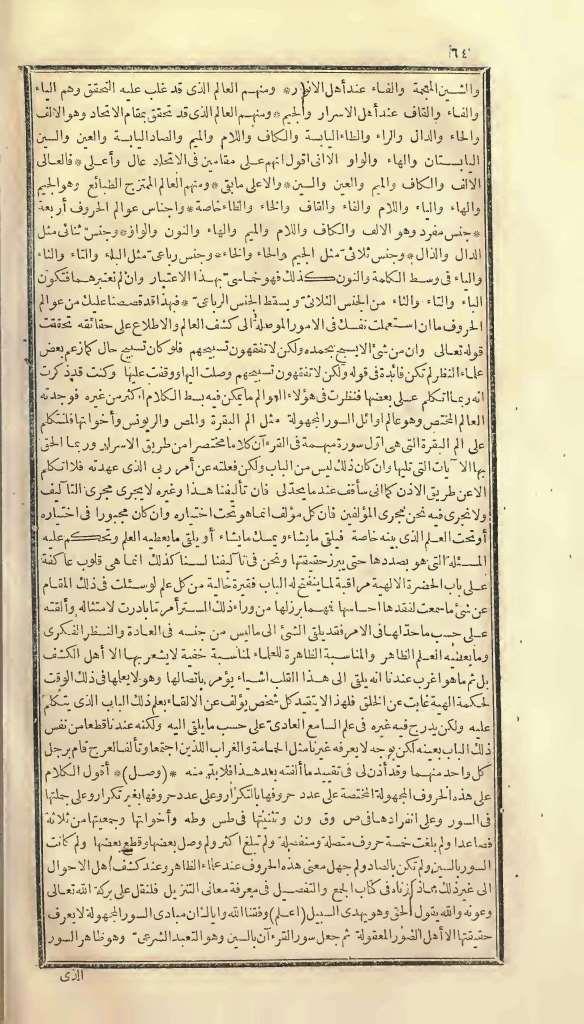 ٦٤
والشين المعجمة والفاء عند أهل الانوار * ومنهم العالم الذى قد غلب عليه التحقق وهم الياء
والفاء والقاف عند أهل الاسرار والجيم * ومنهم العالم الذى قد تحقق بمقام الاتحاد وهو الالف
والحاء والدال والراء والطاء اليابسة والكاف واللام والميم والصاد اليابسة والعين والسين
اليابستان والهاء والواو الا انى اقول انهم على مقامين فى الاتحاد عال وأعلى * فالعالى
الالف والكاف والميم والعين والسين * والاعلى مابقى * ومنهم العالم الممتزج الطبائع وهو الجيم
والهاء والياء واللام والفاء والقاف والخاء والظاء خاصة * واجناس عوالم الحروف أربعة
* جنس مفرد وهو الالف والكاف واللام والميم والهاء والنون والواو * وجنس ثنائى مثل
الدال والذال * وجنس ثلاثى مثل الجيم والحاء والخاء * وجنس رباعى مثل الباء والتاء والثاء
والياء فى وسط الكلمة والنون كذلك فهو خماسى بهذا الاعتبار وان لم تعتبرهما فتكون
الباء والتاء والثاء من الجنس الثلاثى ويسقط الجنس الرباعى * فبهذا قد قصصنا عليك من عوالم
الحروف ما ان استعملت نفسك فى الامور الموصلة الى كشف العالم والاطلاع على حقائقه تحققت
قوله تعالى وان من شئ الا يسبح بحمده ولكن لا تفقهون تسبيحهم فلو كان تسبيح حال كما زعم بعض
علماء النظار لم تكن فائدة فى قوله ولكن لا تفقهون تسبيحهم وصلت اليها ووقفت عليها وكنت قد ذكرت
انه ربما اتكلم على بعضها فنظرت فى هؤلاء العوالم ما يمكن فيه بسط الكلام اكثر من غيره فوجدته
العالم المختص وهو عالم اوائل السور المجهولة مثل الم البقرة والمص والر يونس وأخواتها فلنتكلم
على الم البقرة التى هى اول سورة مبهمة فى القرءآن كلاما مختصرا من طريق الاسرار وربما الحق
بها الآيات التى تليها وان كان ذلك ليس من الباب ولكن فعلته عن أمر ربى الذى عهدته فلا اتكلم
الا عن طريق الاذن كما انى سأقف عند ما يحدّلى فان تأليفنا هذا وغيره لا يجرى مجرى التآليف
ولا نجرى فيه نحن مجرى المؤلفين فان كل مؤلف انما هو تحت اختياره وان كان مجبورا فى اختياره
أو تحت العلم الذى يبثه خاصة فيلقى ما يشاء ويمسك ما يشاء أو يلقى ما يعطيه العلم وتحكم عليه
المسئلة التى هو بصددها حتى يبرز حقيقتها ونحن فى تآليفنا لسنا كذلك انما هى قلوب عاكفة
على باب الحضرة الالهية مراقبة لما ينفتح له الباب فقيرة خالية من كل علم لو سئلت فى ذلك المقام
عن شئ ما سمعت لفقدها احساسها فمهما برز لها من وراء ذلك الستر أمر ما بادرت لامتثاله وألفته
على حسب ما حدّ لها فى الامر فقد يلقى الشئ الى ما ليس من جنسه فى العادة والنظر الفكرى
وما يعطيه العلم الظاهر والمناسبة الظاهرة للعلماء لمناسبة خفية لا يشعر بها الا أهل الكشف
بل ثم ما هو أغرب عندنا انه يلقى الى هذا القلب اشياء يؤمر بايصالها وهو لا يعلمها فى ذلك الوقت
لحكمة الهية غابت عن الخلق فلهذا لا يتقيد كل شخص يؤلف عن الالقاء بعلم ذلك الباب الذى يتكلم
عليه ولكن يدرج فيه غيره فى علم السامع العادى على حسب ما يلقى اليه ولكنه عندنا قطعا من نفس
ذلك الباب بعينه لكن بوجه لا يعرفه غيرنا مثل الحمامة والغراب اللذين اجتمعا وتألفا لعرج قام برجل
كل واحد منهما وقد أذن لى فى تقييد ما ألقته بعد هذا فلا بدّ منه * (وصل) * أقول الكلام
على هذه الحروف المجهولة المختصة على عدد حروفها بالتكرار وعلى عدد حروفها بغير تكرار وعلى جملتها
فى السور وعلى افرادها فى ص وق ون وتثنيتها فى طس وطه وأخواتها وجمعيتها من ثلاثة
فصاعدا ولم بلغت خمسة حروف متصلة ومنفصلة ولم تبلغ اكثر ولم وصل بعضها وقطع بعضها ولم كانت
السور بالسين ولم تكن بالصاد ولم جهل معنى هذه الحروف عند علماء الظاهر وعند كشف أهل الاحوال
الى غير ذلك مما ذكرناه فى كتاب الجمع والتفصيل فى معرفة معانى التنزيل فلنقل على بركة الله تعالى
وعونه والله يقول الحق وهو يهدى السبيل (اعلم) وفقنا الله واياك ان مبادى السور المجهولة لا يعرف
حقيقتها الا أهل الصور المعقولة ثم جعل سور القرءآن بالسين وهو التعبد الشرعى وهو ظاهر السور
الذى